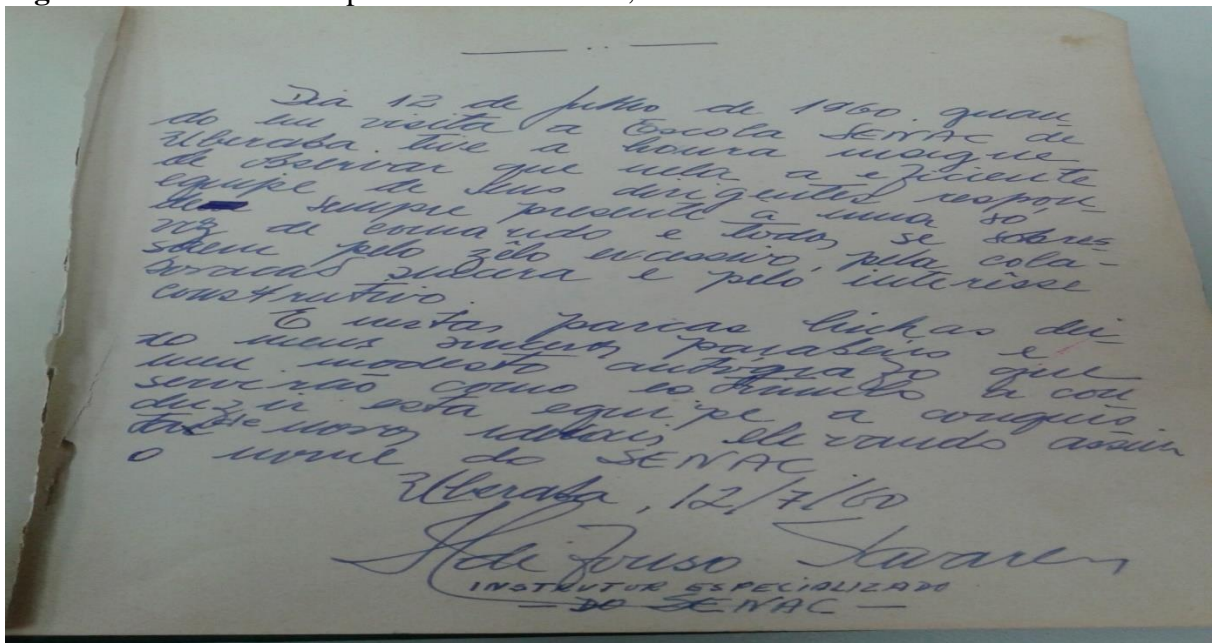 — .. —
Dia 12 de Julho de 1960. quan
do em visita a Escola SENAC de
Uberaba tive a honra insigne
de observar que nela a eficiente
equipe de seus dirigentes respon-
de sempre presente a uma só
voz de comando e todos se sobres
saem pelo zêlo excessivo, pela cola-
boracao sincera e pelo interêsse
construtivo.
E nestas parcas linhas dei-
xo meus sinceros parabens e
meu modesto autógrafo que
servirão como estimulo a con
duzir esta equipe a conquis
ta de novos ideais, elevando assim
o nome do SENAC
Uberaba, 12/7/60
Ildefonso Tavares
INSTRUTOR ESPECIALIZADO
— DO SENAC —